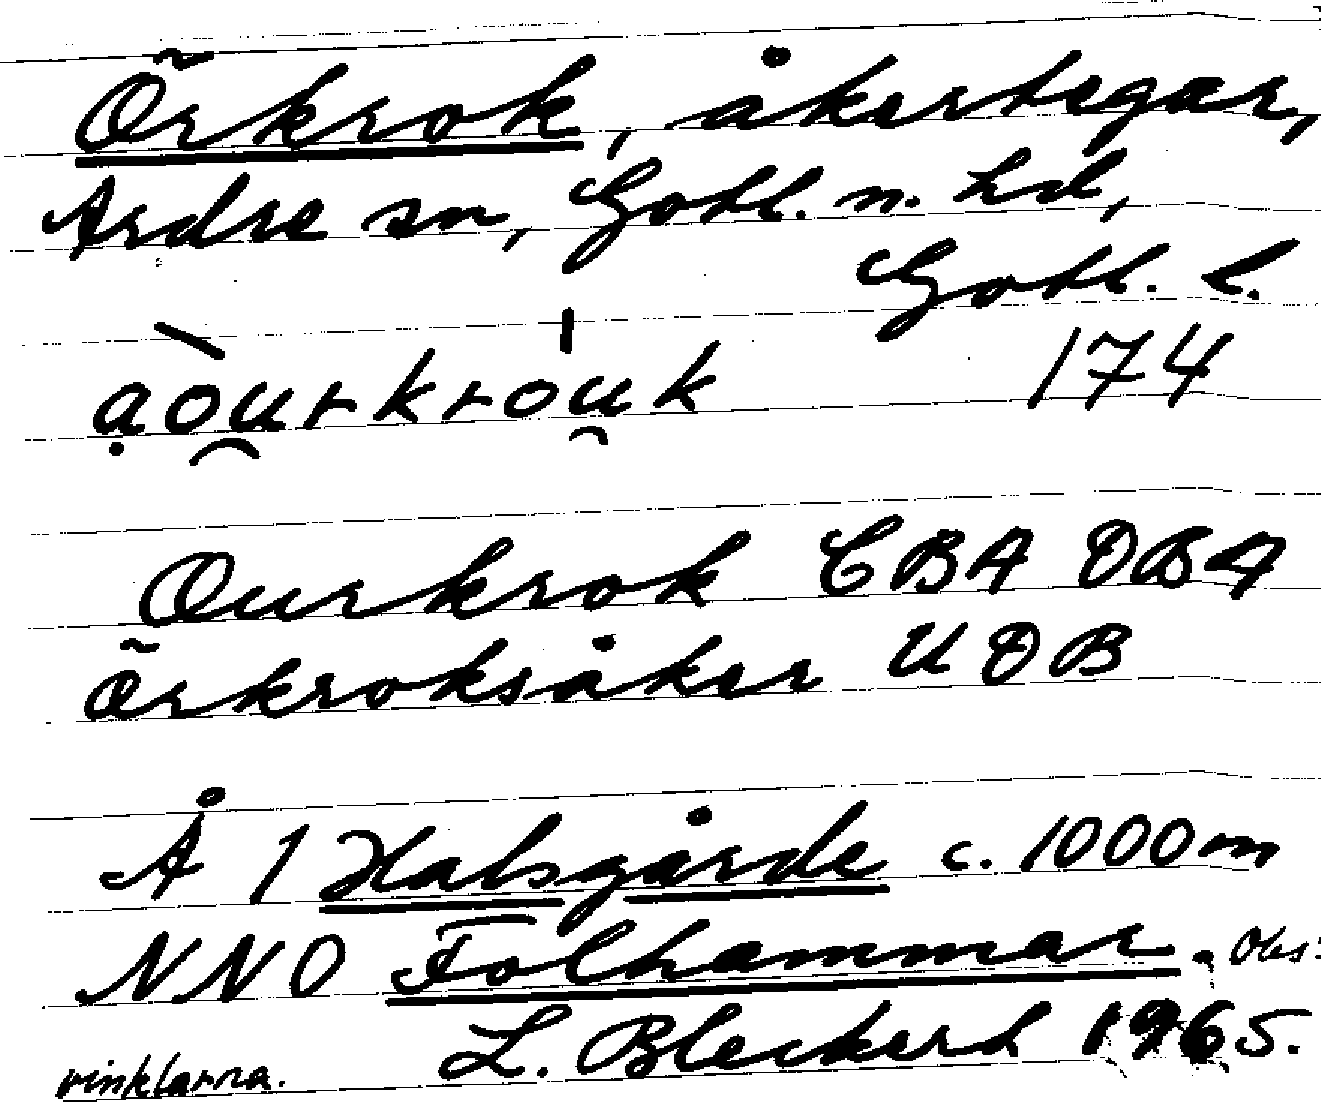 Örkrok, åkertegar,
Ardre sn, Gotl. n. hd,
Gotl. l.
ạòu̯rkròu̯k 174
Ourkrok CBA OBA
Örkroksåker UOB
Å 1 Halsgårde c. 1000 m
NNO Folhammar. Obs:
vinklarna. L. Bleckert 1965.